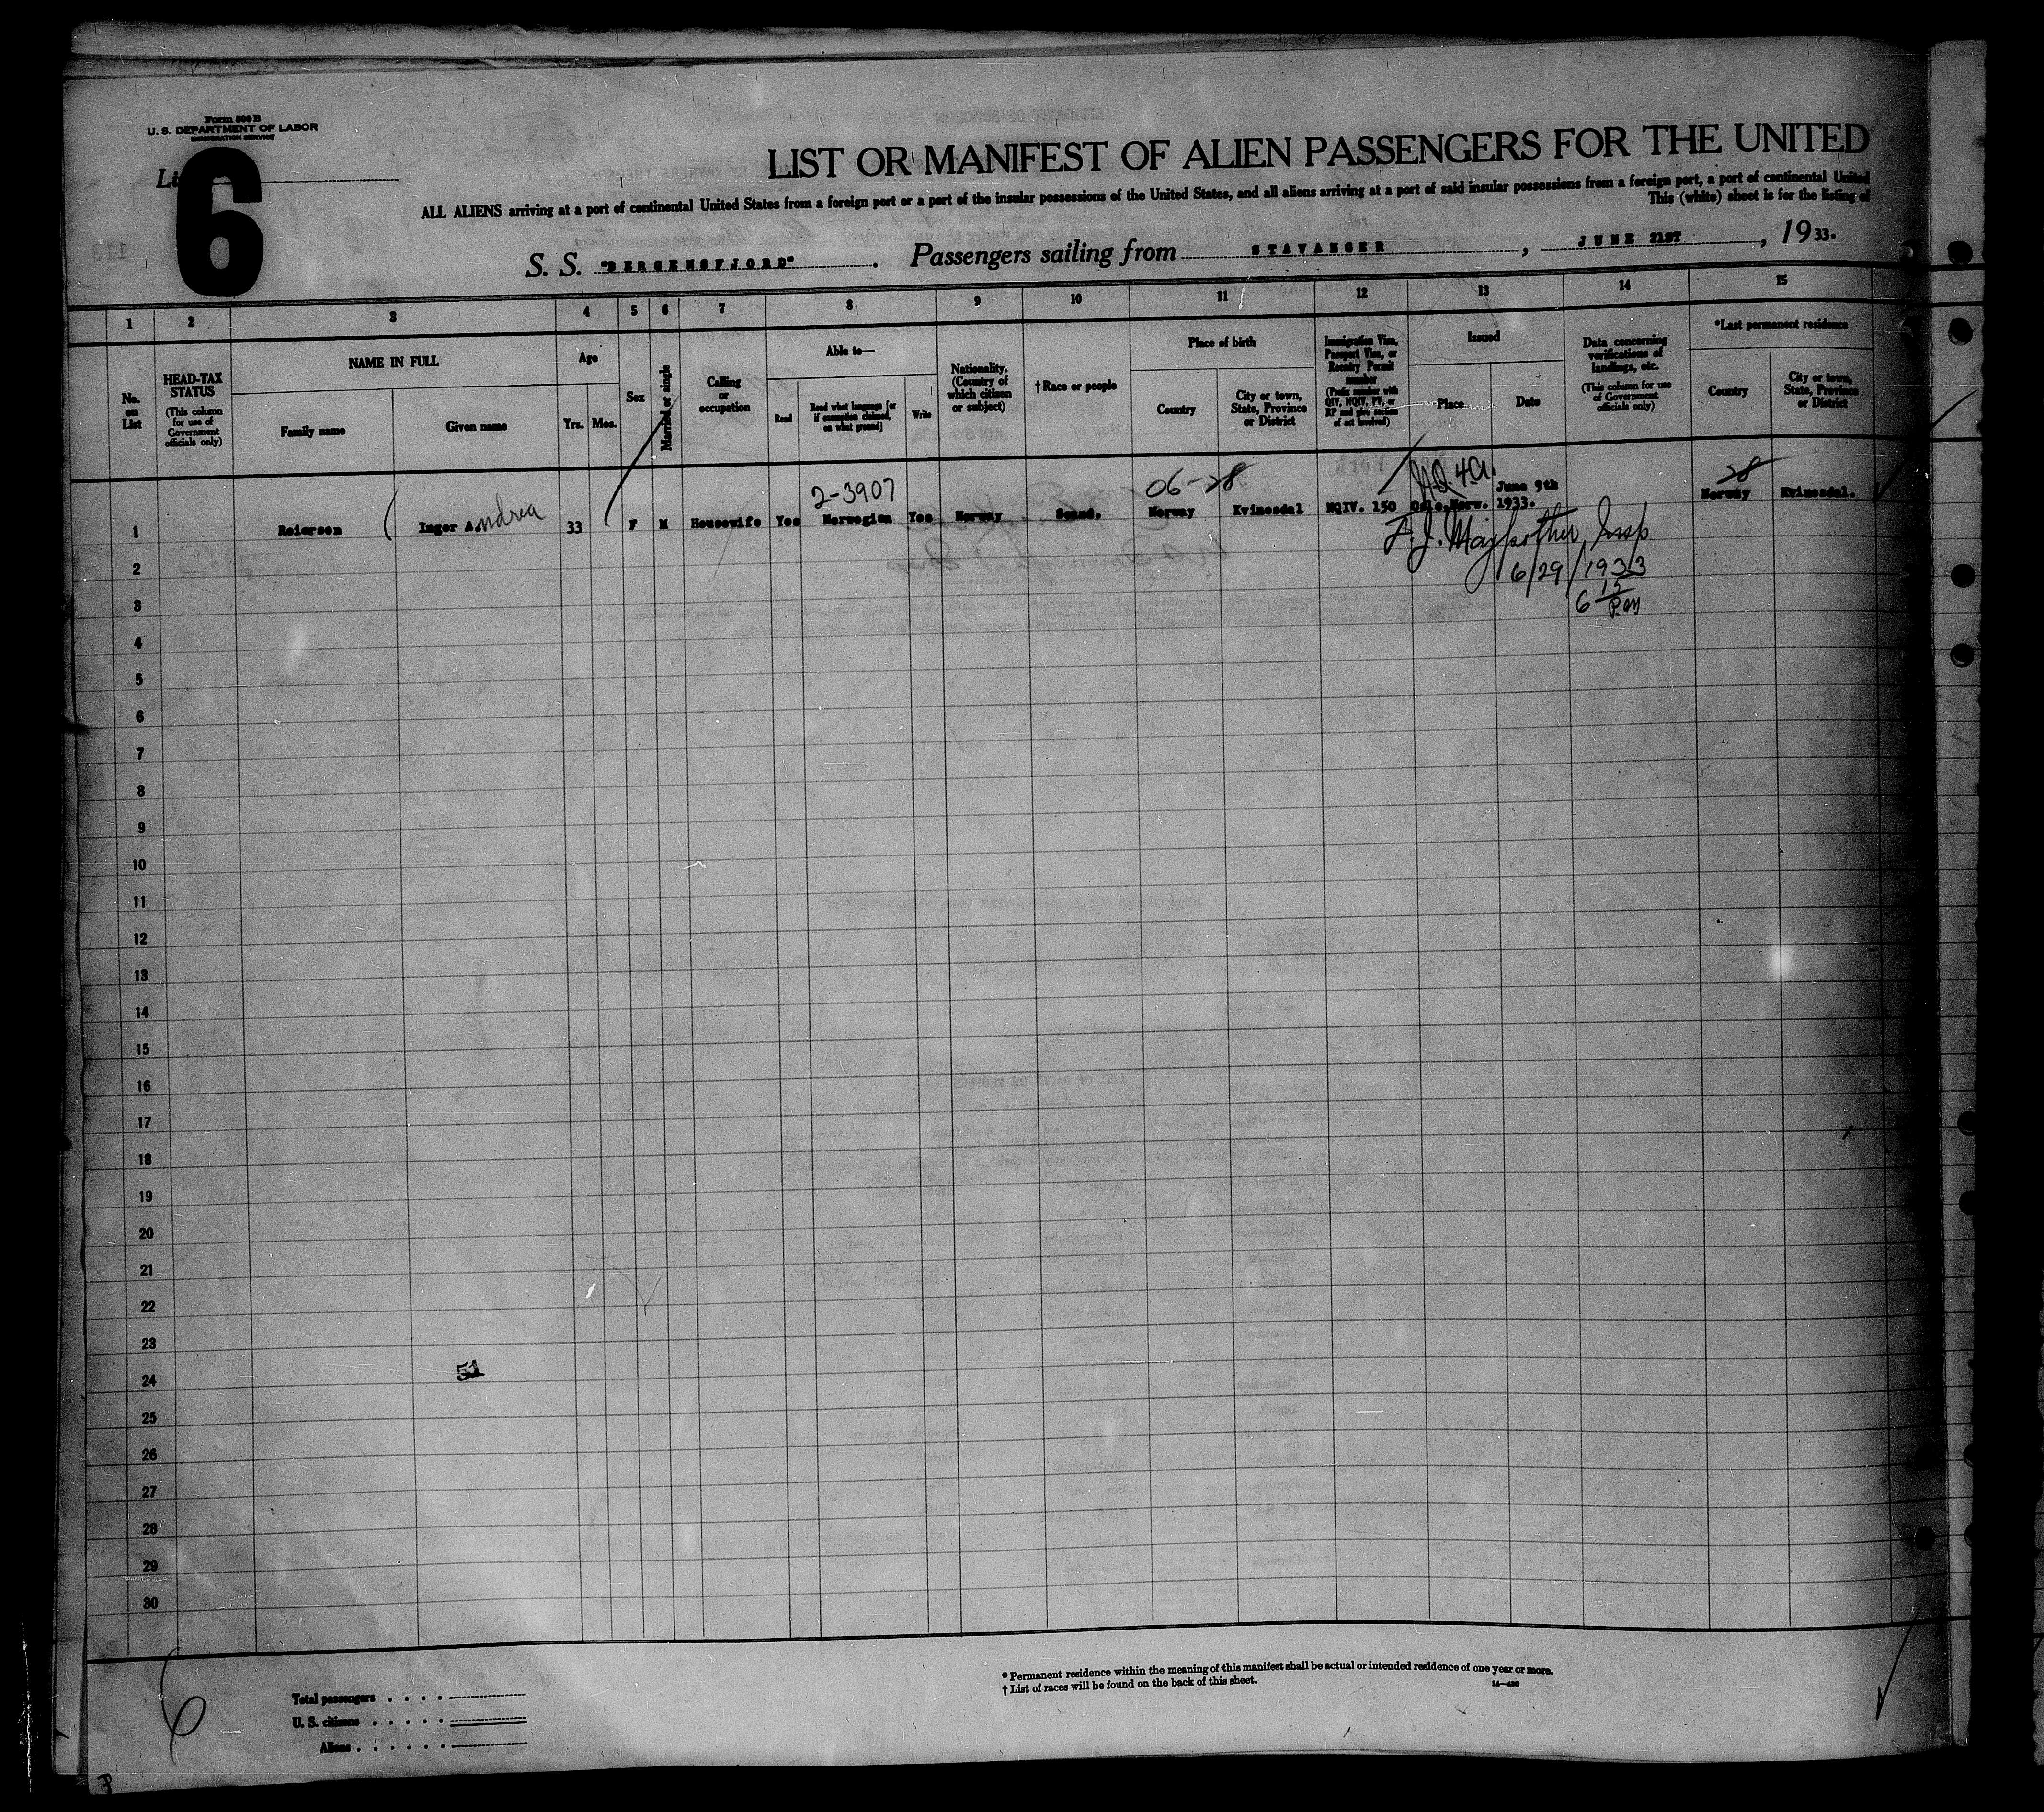 Form 500 B
U. S. DEPARTMENT OF LABOR
IMMIGRATION SERVICE
6
LIST OR MANIFEST OF ALIEN PASSENGERS FOR THE UNITED
ALL ALIENS arriving at a port of continental United States from a foreign port or a port of the insular possessions of the United States, and all aliens arriving at a port of said insular possessions from a foreign port, a port of continental United
This (white) sheet is for the listing of
S. S. "BERGENSFJORD". Passengers sailing from STAVANGER, JUNE 21ST, 1933.
1 2 3 4 5 6 7 8 9 10 11 12 13 14 15
No. on List
HEAD-TAX STATUS
(This column for use of Government officials only)
NAME IN FULL
Family name
Given name
Age
Yrs. Mos.
Sex
Married or single
Calling or occupation
Able to—
Read
Read what language [or if exemption claimed, on what ground]
Write
Nationality. (Country of which citizen or subject)
†Race or people
Place of birth
Country
City or town, State, Province or District
Immigration Visa, Passport Visa, or Reentry Permit number
(Prefix number with QIV, NQIV, PV, or RP and give section of act involved)
Issued
Place
Date
Data concerning verifications of landings, etc.
(This column for use of Government officials only)
*Last permanent residence
Country
City or town, State, Province or District
2-3907 06-28 4a. 28
1 Reierson Inger Andrea 33 F M Housewife Yes Norwegian Yes Norway Scand. Norway Kvinesdal NQIV. 150 Oslo, Norw. June 9th 1933. Norway Kvinesdal.
F. J. Insp
6/29/1933
6 15 P.M
2
3
4
5
6
7
8
9
10
11
12
13
14
15
16
17
18
19
20
21
22
23
24
51
25
26
27
28
29
30
6
Total passengers
U. S. citizens
Aliens
* Permanent residence within the meaning of this manifest shall be actual or intended residence of one year or more.
† List of races will be found on the back of this sheet.
14—430